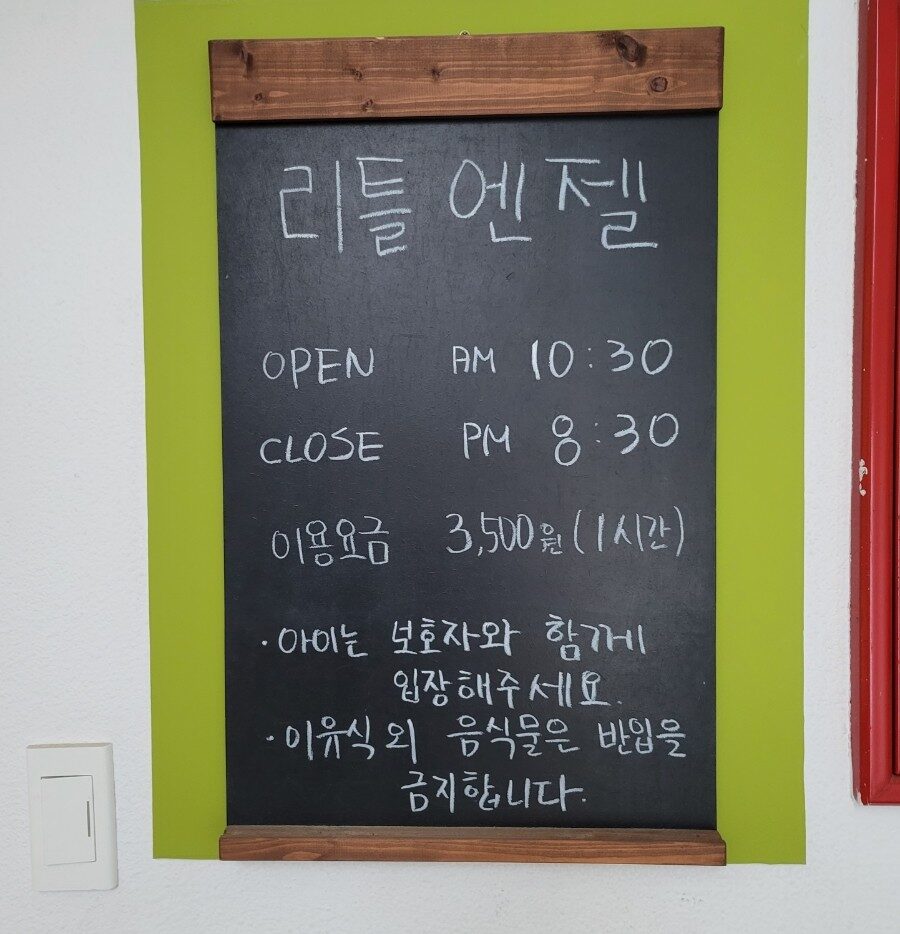 리틀 엔젤
OPEN AM 10:30
CLOSE PM 8:30
이용요금 3,500원 (1시간)
· 아이는 보호자와 함께
입장해주세요.
· 이유식 외 음식물은 반입을
금지합니다.